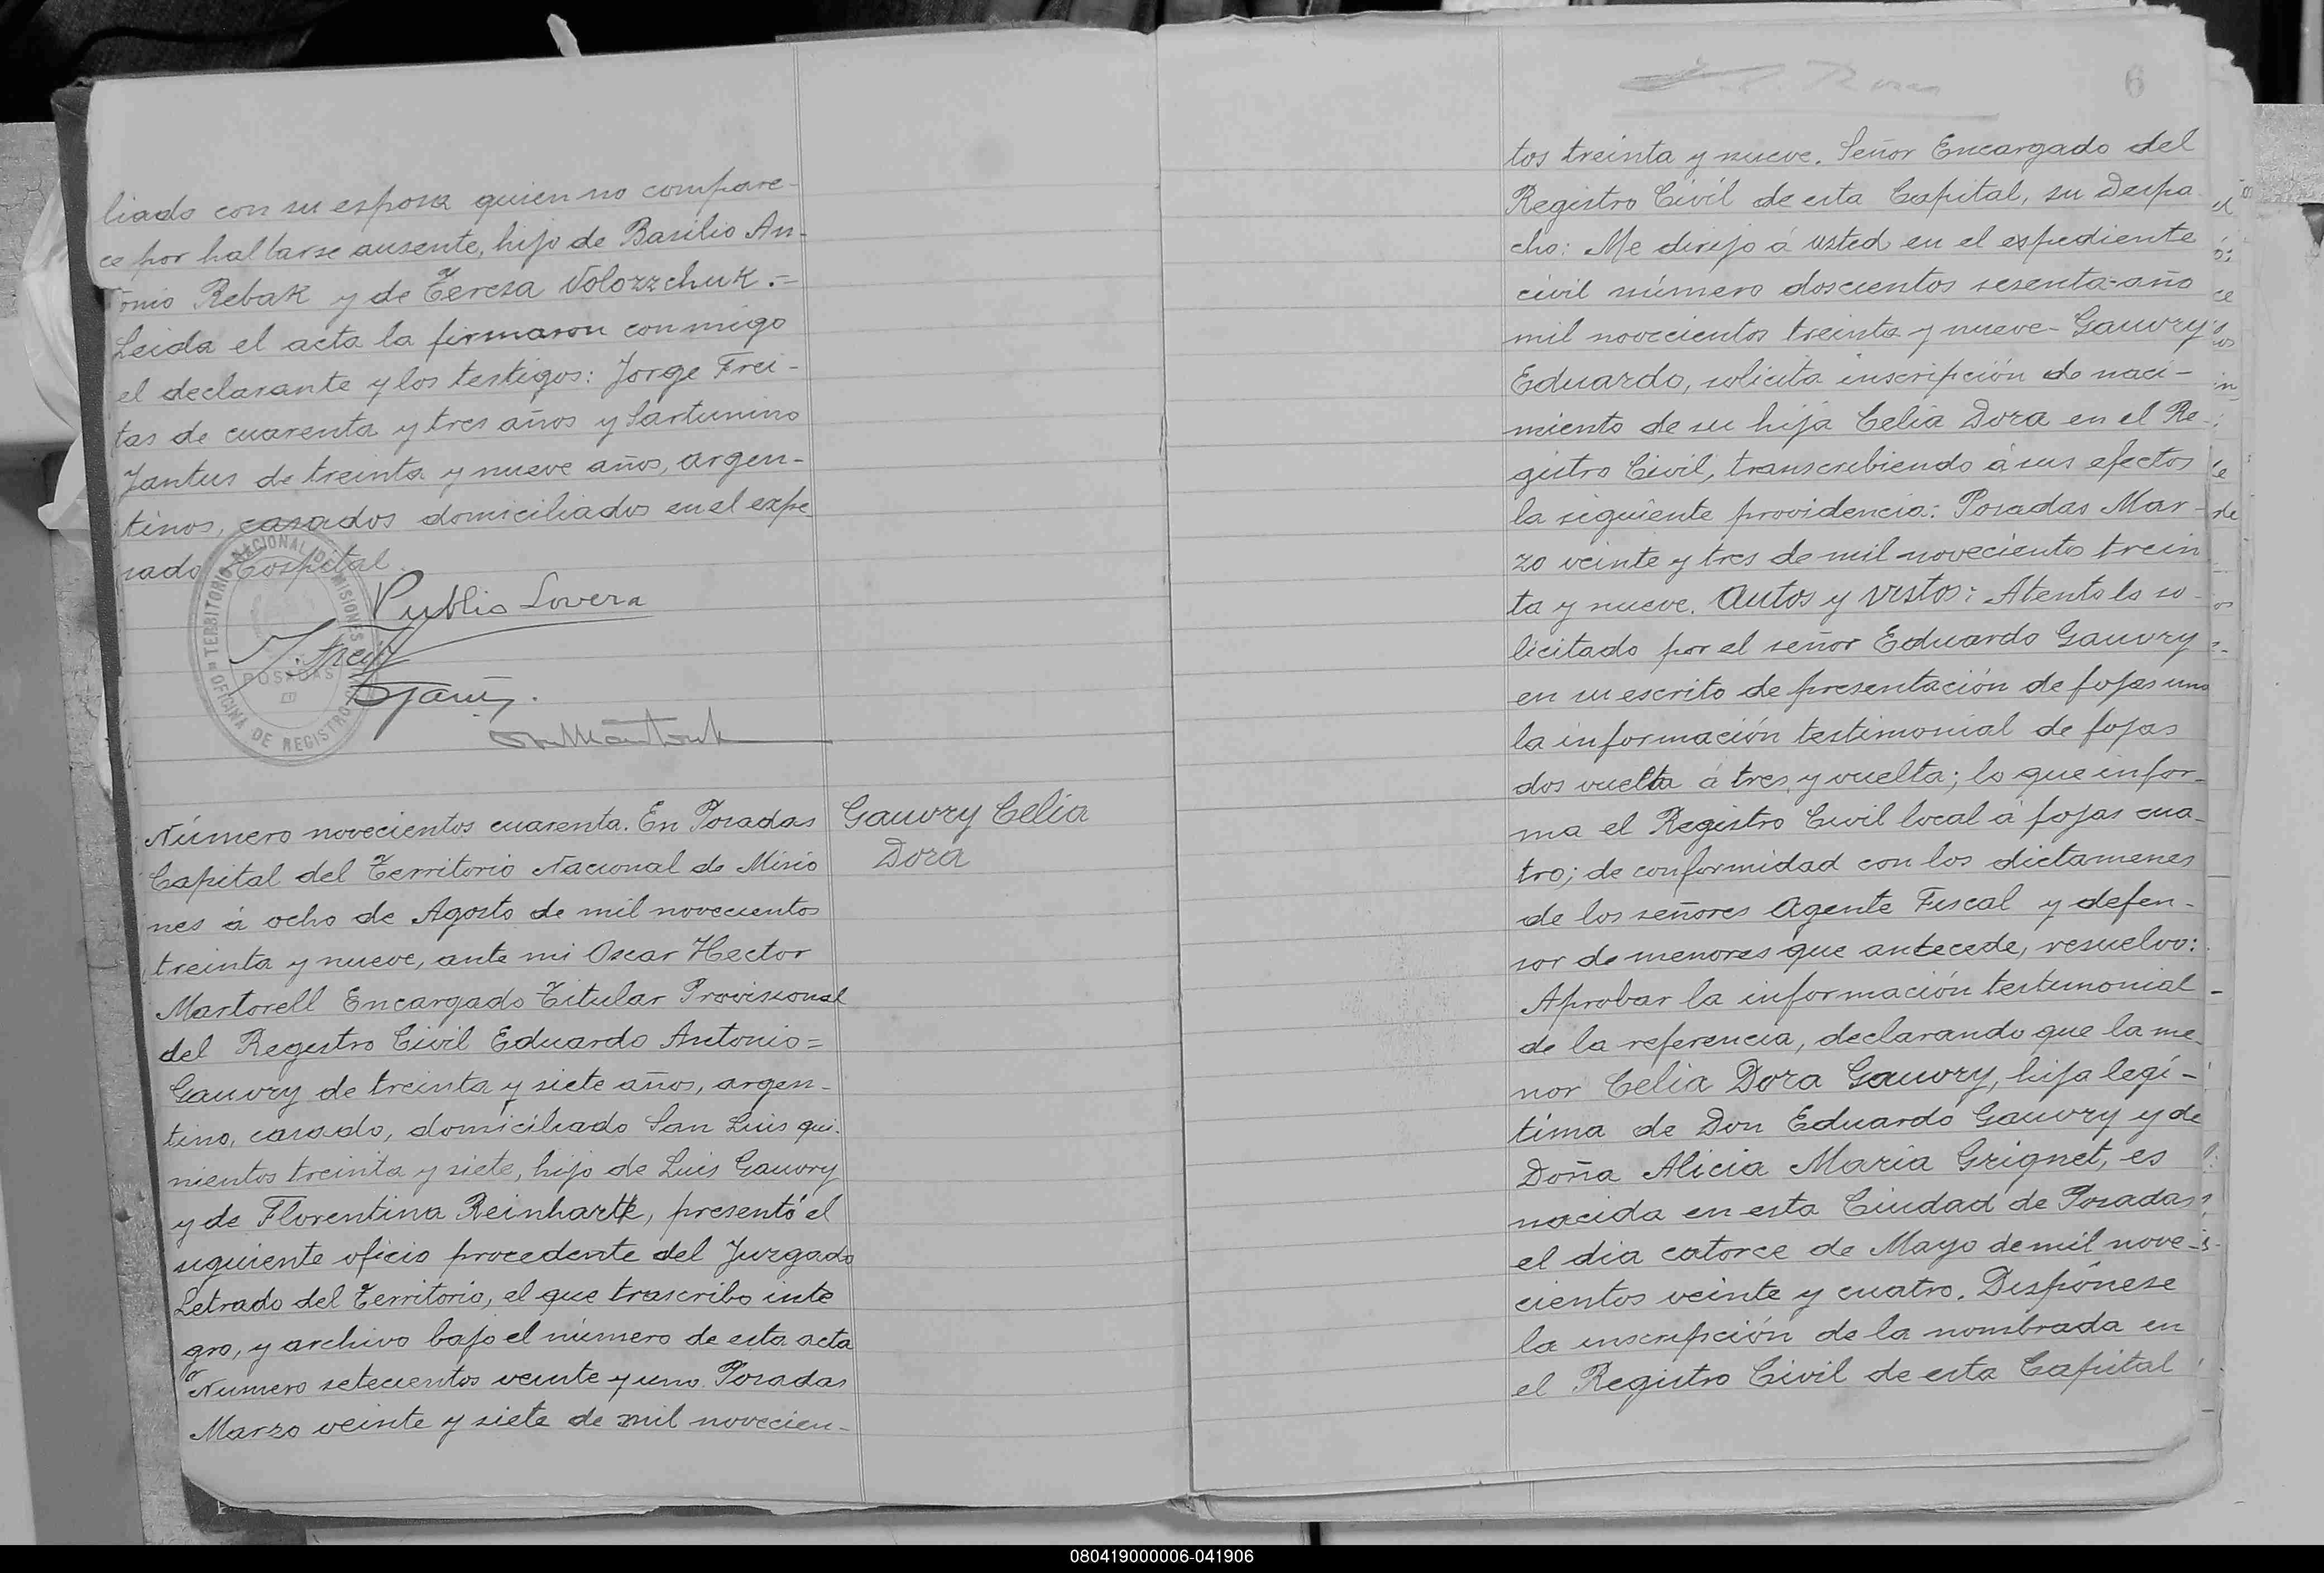 liado con su esposa quien no compare-
ce por hallarse ausente, hijo de Basilio An-
tonio Rebak y de Teresa Volozzchuk.=
Leida el acta la firmaron conmigo
el declarante y los testigos: Jorge Frei-
tas de cuarenta y tres años y Sartunino
Jantus de treinta y nueve años, argen-
tinos, casados domiciliados en el expe
sado Hospital.
Publio Lovera
TERRITORIO NACIONAL DE MISIONES
POSADAS
OFICINA DE REGISTRO
Número novecientos cuarenta. En Posadas
Capital del Territorio Nacional de Misio
nes á ocho de Agosto de mil novecientos
treinta y nueve, ante mi Oscar Hector
Martorell Encargado Titular Provisional
del Registro Civil Eduardo Antonio=
Gauvry de treinta y siete años, argen-
tino, casado, domiciliado San Luis qui-
nientos treinta y siete, hijo de Luis Gauvry
y de Florentina Reinhartk, presentó el
siguiente oficio procedente del Juzgado
Letrado del Territorio, el que trascribo inte
gro, y archivo bajo el número de esta acta
Numero setecientos veinte y uno. Posadas
Marzo veinte y siete de mil novecien-
Gauvry Celia
Dora
6
tos treinta y nueve. Señor Encargado del
Registro Civil de esta Capital, su Despa
cho: Me dirijo á usted en el expediente
civil número doscientos sesenta=año
mil novecientos treinta y nueve- Gauvry
Eduardo, solicita inscripción de naci-
miento de su hija Celia Dora en el Re-
gistro Civil, transcribiendo á sus efectos
la siguiente providencia: Posadas Mar-
zo veinte y tres de mil novecientos trein
ta y nueve. Autos y vistos: Atento lo so-
licitado por el señor Eduardo Gauvry
en su escrito de presentación de fojas una
la información testimonial de fojas
dos vuelta á tres y vuelta; lo que infor-
ma el Registro Civil local á fojas cua-
tro; de conformidad con los dictamenes
de los señores Agente Fiscal y defen-
sor de menores que antecede, resuelvo:
Aprobar la información testimonial
de la referencia, declarando que la me-
nor Celia Dora Gauvry, hija legí-
tima de Don Eduardo Gauvry y de
Doña Alicia María Grignet, es
nacida en esta Ciudad de Posadas
el dia catorce de Mayo de mil nove-
cientos veinte y cuatro. Dispónese
la inscripción de la nombrada en
el Registro Civil de esta Capital
080419000006-041906